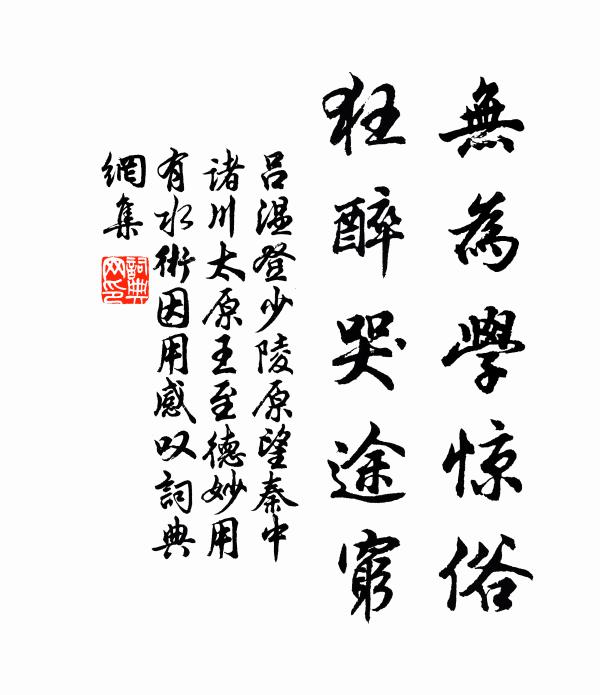 無為學惊俗
狂醉哭途窮
吕温登少陵原望秦中
诸川太原王至德妙用
有水術因用感叹詞典
網集
詞典
网印